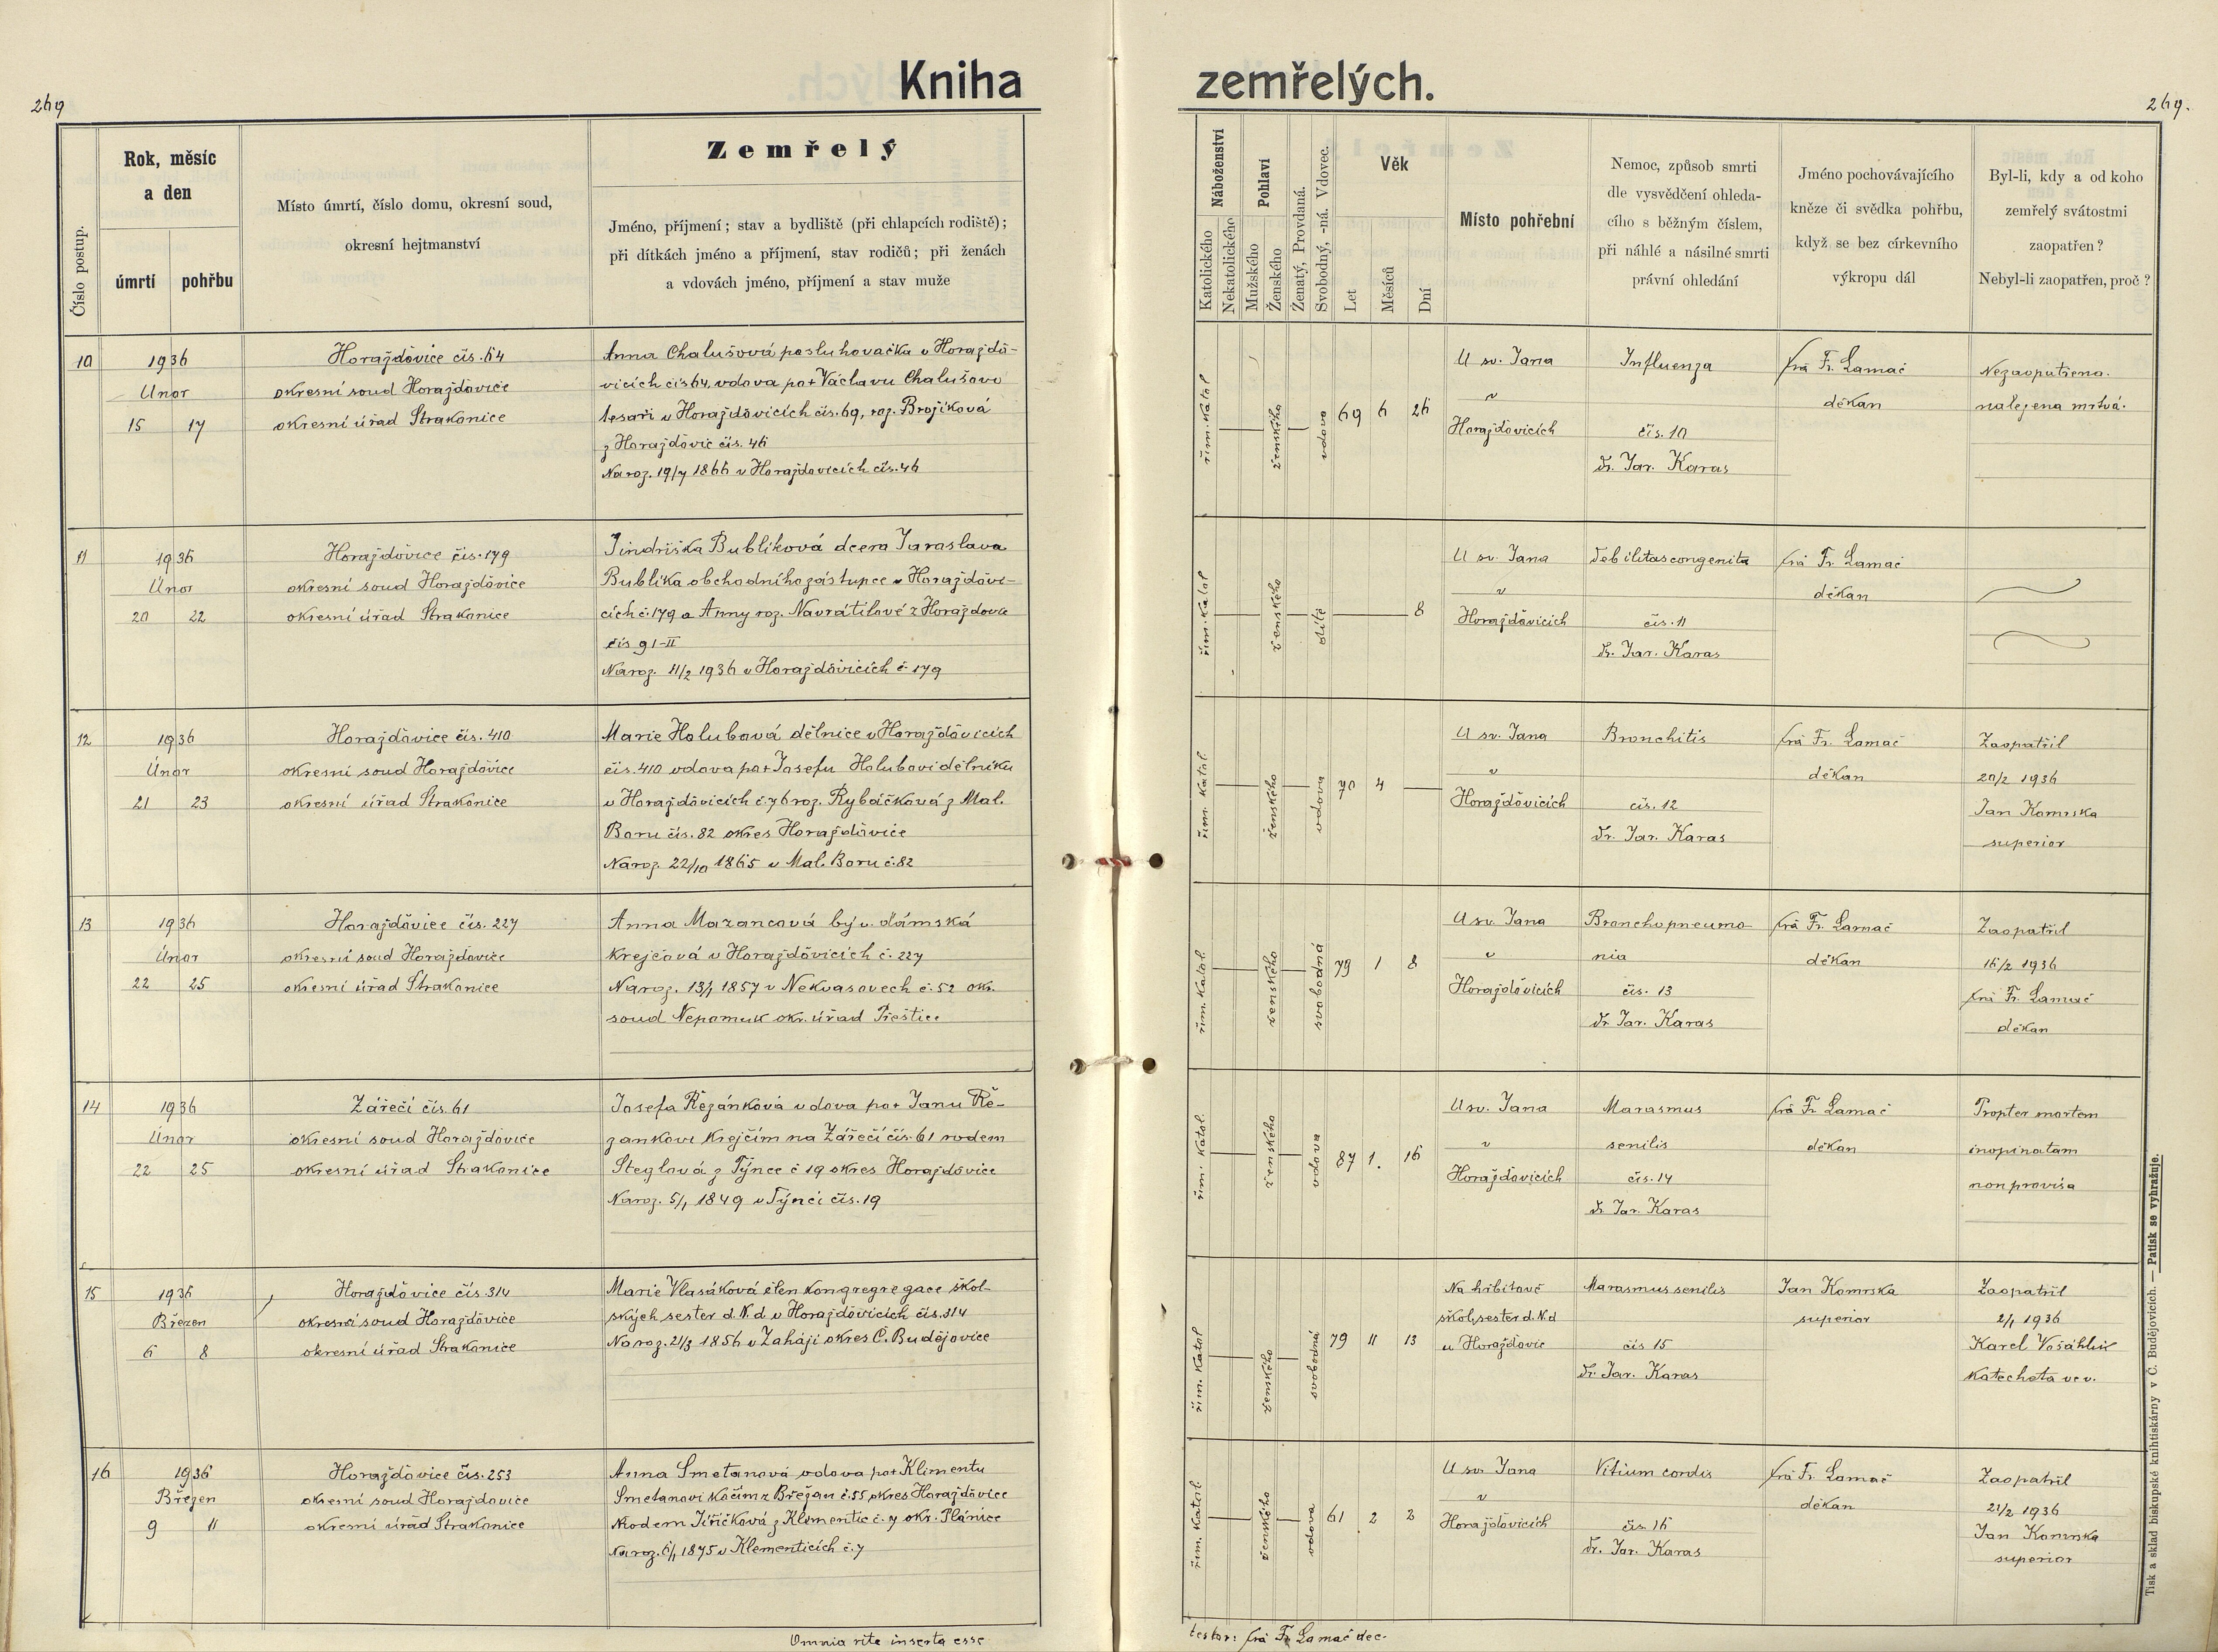 269
Kniha
zemřelých.
269.
Číslo postup.
Rok, měsíc
a den
úmrtí
pohřbu
Místo úmrtí, číslo domu, okresní soud,
okresní hejtmanství
Zemřelý
Jméno, příjmení; stav a bydliště (při chlapcích rodiště);
při dítkách jméno a příjmení, stav rodičů; při ženách
a vdovách jméno, příjmení a stav muže
Náboženství
Katolického
Nekatolického
Pohlaví
Mužského
Ženského
Ženatý, Provdaná.
Svobodný, -ná. Vdovec.
Věk
Let
Měsíců
Dní
Místo pohřební
Nemoc, způsob smrti
dle vysvědčení ohleda-
cího s běžným číslem,
při náhlé a násilné smrti
právní ohledání
Jméno pochovávajícího
kněze či svědka pohřbu,
když se bez církevního
výkropu dál
Byl-li, kdy a od koho
zemřelý svátostmi
zaopatřen?
Nebyl-li zaopatřen, proč?
10
1936
Únor
15 17
Horažďovice čís. 64
okresní soud Horažďovice
okresní úřad Strakonice
Anna Chalušová posluhovačka v Horažďo-
vicích čís 64, vdova po + Václavu Chalušovi
tesaři v Horažďovicích čís. 69, roz. Brojíková
z Horažďovic čís. 46
Naroz. 19/7 1866 v Horažďovicích čís. 46
řím. katol
ženského
vdova
69 6 26
U sv. Jana
v
Horažďovicích
Influenza
čís. 10
dr. Jar. Karas
fra Fr. Lamač
děkan
Nezaopatřena.
nalezena mrtvá.
11
1936
Únor
20 22
Horažďovice čís. 179
okresní soud Horažďovice
okresní úřad Strakonice
Jindřiška Bublíková dcera Jaroslava
Bublíka obchodního zástupce v Horažďovi-
cích č. 179 a Anny roz. Navrátilové z Horažďovic
čís 91-II
Naroz. 11/2 1936 v Horažďovicích č 179
řím. katol
ženského
dítě
8
U sv. Jana
v
Horažďovicích
Debilitas congenita
čís. 11
dr. Jar. Karas
fra Fr. Lamač
děkan
12
1936
Únor
21 23
Horažďovice čís. 410
okresní soud Horažďovice
okresní úřad Strakonice
Marie Holubová dělnice v Horažďovicích
čís. 410 vdova po + Josefu Holubovi dělníku
v Horažďovicích č. 76 roz. Rybáčková z Mal.
Boru čís. 82 okres Horažďovice
Naroz. 22/10 1865 v Mal. Boru č. 82
řím. katol.
ženského
vdova
70 4
U sv. Jana
v
Horažďovicích
Bronchitis
čís. 12
dr. Jar. Karas
fra Fr. Lamač
děkan
Zaopatřil
20/2 1936
Jan Komrska
superior
13
1936
Únor
22 25
Horažďovice čís. 227
okresní soud Horažďovice
okresní úřad Strakonice
Anna Mazancová býv. dámská
krejčová v Horažďovicích č. 227
Naroz. 13/1 1857 v Nekvasovech č. 52 okr.
soud Nepomuk okr. úřad Přeštice
řím. katol.
ženského
svobodná
79 1 8
U sv. Jana
v
Horažďovicích
Bronchopneumo-
nia
čís. 13
dr Jar. Karas
fra Fr. Lamač
děkan
Zaopatřil
16/2 1936
fra Fr. Lamač
děkan
14
1936
Únor
22 25
Zářečí čís. 61
okresní soud Horažďovice
okresní úřad Strakonice
Josefa Řezánková vdova po + Janu Ře-
zánkovi krejčím na Zářečí čís. 61 rodem
Steglová z Týnce č 19 okres Horažďovice
Naroz. 5/1 1849 v Týnci čís. 19
řím. katol.
ženského
vdova
87 1. 16
U sv. Jana
v
Horažďovicích
Marasmus
senilis
čís. 14
dr Jar. Karas
fra Fr Lamač
děkan
Propter mortem
inopinatam
non provisa
15
1936
Březen
6 8
Horažďovice čís. 314
okresní soud Horažďovice
okresní úřad Strakonice
Marie Vlasáková člen kongregregace škol-
ských sester d. N. d v Horažďovicích čís. 314
Naroz. 21/3 1856 v Zaháji okres Č. Budějovice
řím. katol
ženského
svobodná
79 11 13
Na hřbitově
škol. sester d. N. d
u Horažďovic
Marasmus senilis
čís 15
dr. Jar. Karas
Jan Komrska
superior
Zaopatřil
2/1 1936
Karel Vošáhlík
katecheta v. v.
16
1936
Březen
9 11
Horažďovice čís. 253
okresní soud Horažďovice
okresní úřad Strakonice
Anna Smetanová vdova po + Klimentu
Smetanovi kočím z Břežan č. 55 okres Horažďovice
rodem Jiřičková z Klementic č. 7 okr. Plánice
Naroz. 6/1 1875 v Klementicích č. 7
řím. katol.
ženského
vdova
61 2 2
U sv. Jana
v
Horažďovicích
Vitium cordis
čís. 16
dr. Jar. Karas
fra Fr. Lamač
děkan
Zaopatřil
21/2 1936
Jan Komrska
superior
Omnia rite inserta esse
testor: fra Fr. Lamač dec.
Tisk a sklad biskupské knihtiskárny v Č. Budějovicích. — Patisk se vyhražuje.